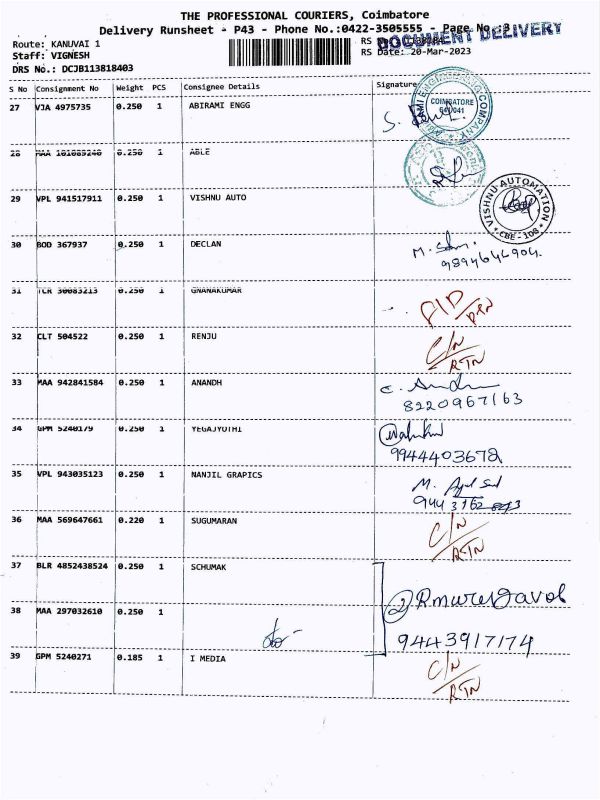 THE PROFESSIONAL COURIERS, Coimbatore
Delivery Runsheet - P43 - Phone No.:0422-3505555 - Page No. 3
DOCUMENT DELIVERY
Route: KANUVAI 1
RS No:
Staff: VIGNESH
RS Date: 20-Mar-2023
DRS No.: DCJB113818403
S No Consignment No Weight PCS Consignee Details Signature
27 VJA 4975735 0.250 1 ABIRAMI ENGG
COIMBATORE
641041
28 MAA 0.250 1 ABLE
29 VPL 941517911 0.250 1 VISHNU AUTO
VISHNU AUTOMATION
CBE - 108
30 BOD 367937 0.250 1 DECLAN
9894644904.
31 TCR 30083213 0.250 1 GNANAKUMAR
32 CLT 504522 0.250 1 RENJU
C/N
RTN
33 MAA 942841584 0.250 1 ANANDH
8220967163
34 GPM 5240179 0.250 1 YEGAJYOTHI
9944403678
35 VPL 943035123 0.250 1 NANJIL GRAPICS
36 MAA 569647661 0.220 1 SUGUMARAN
C/N
RTN
37 BLR 4852438524 0.250 1 SCHUMAK
38 MAA 297032610 0.250 1
9443917174
39 GPM 5240271 0.185 1 I MEDIA
C/N
RTN